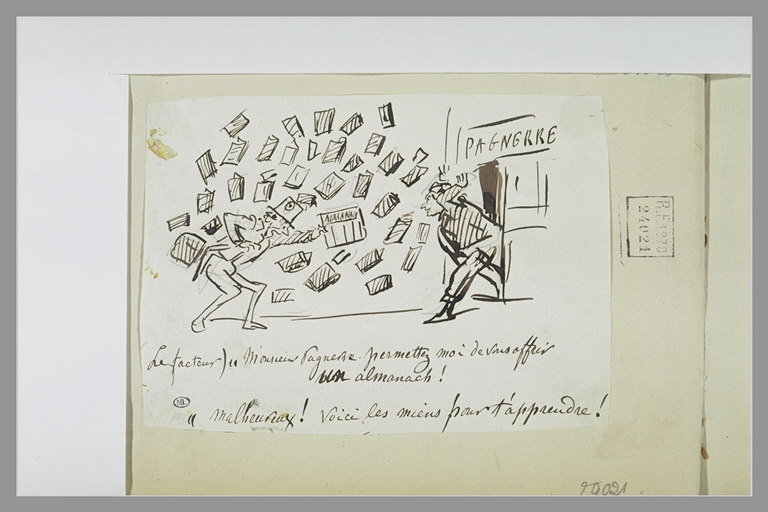 PAGNERRE
ALMANACH
(Le facteur) " Monsieur Pagnerre permettez moi de vous offrir
un almanach !
" malheureux ! Voici les miens pour t'apprendre !
R.F. 1970
24021
24021